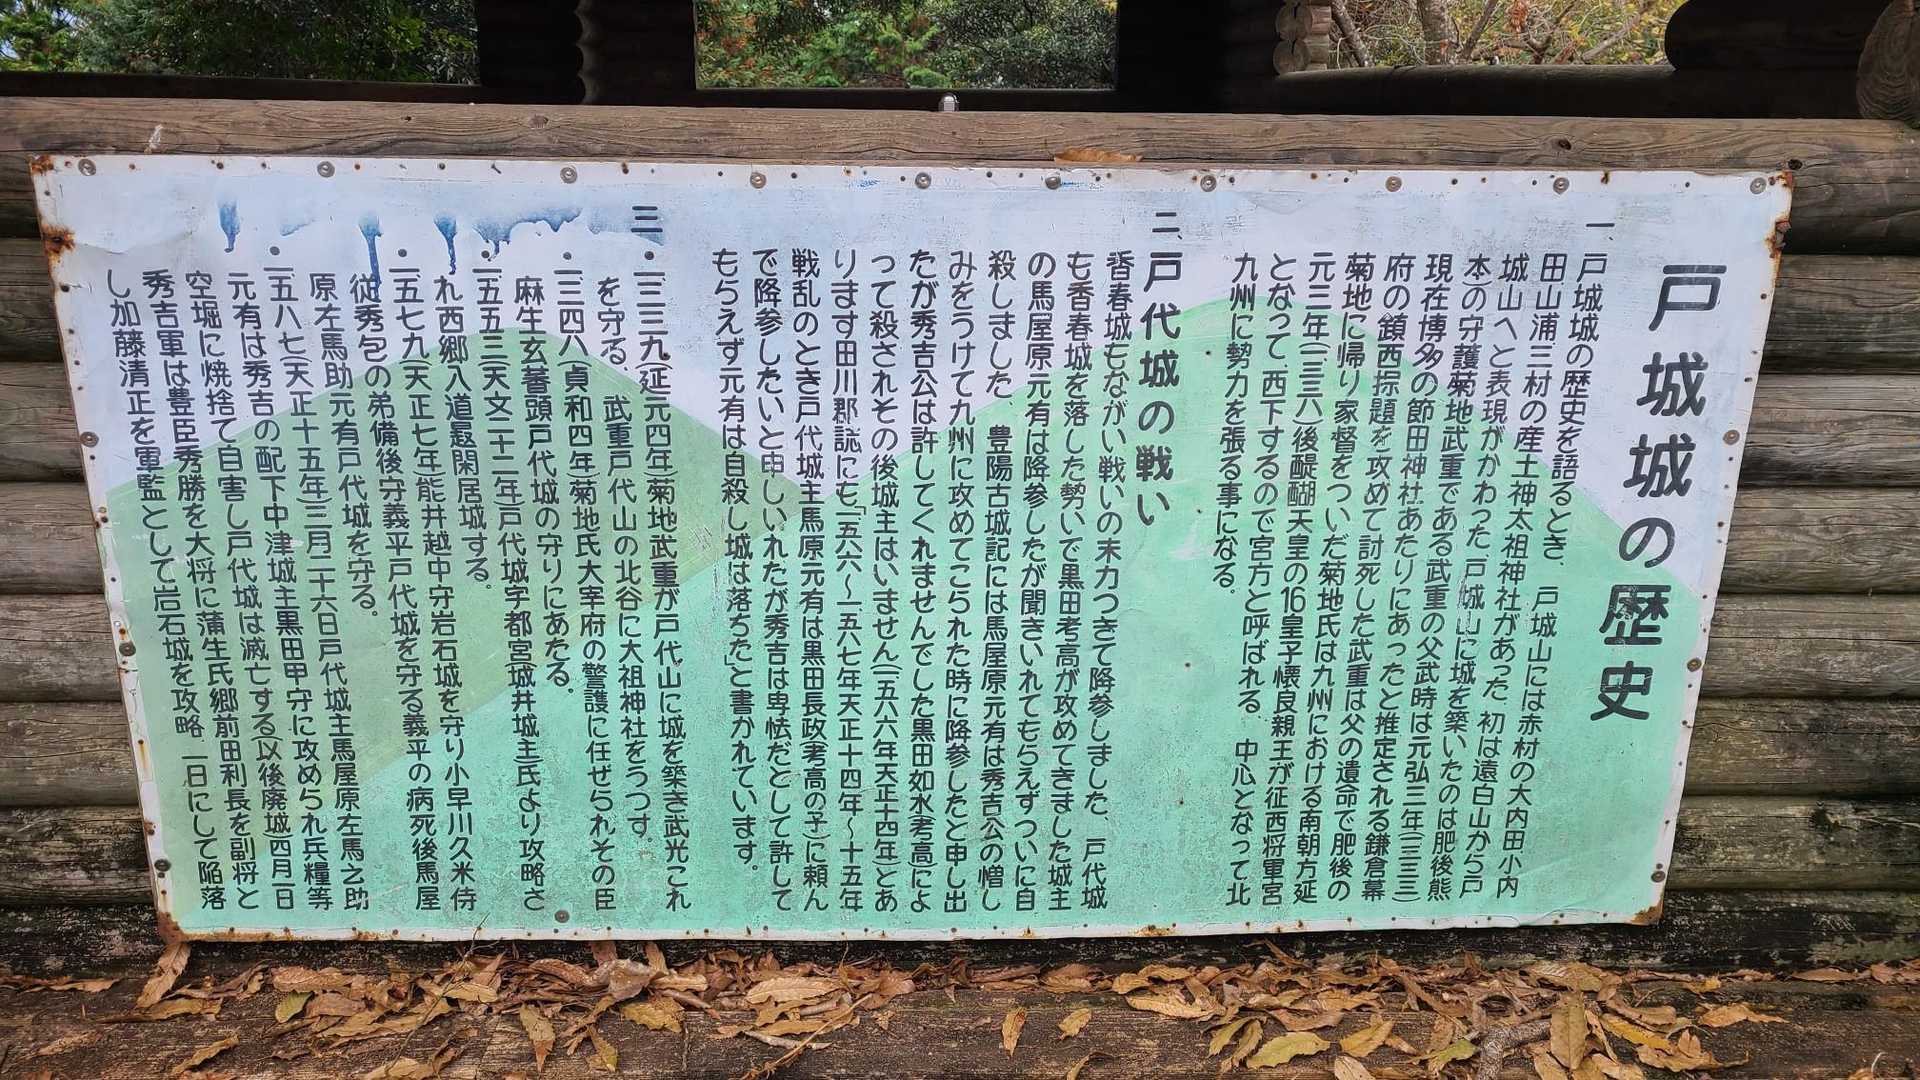 戸城城の歴史
一、戸城城の歴史を語るとき、戸城山には赤村の大内田小内
田山浦三村の産土神太祖神社があった 初は遠白山から戸
城山へと表現がかわった「戸城山」に城を築いたのは肥後熊
本の守護菊地武重である武重の父武時は元弘三年(一三三三)
現在博多の節田神社あたりにあったと推定される鎌倉幕
府の鎮西探題を攻めて討死した武重は父の遺命で肥後の
菊地に帰り家督をついだ菊地氏は九州における南朝方延
元三年(一三三八)後醍醐天皇の16皇子懐良親王が征西将軍宮
となって、西下するので宮方と呼ばれる、中心となって北
九州に勢力を張る事になる。
二、戸代城の戦い
香春城もながい戦いの末力つきて降参しました 戸代城
も香春城を落した勢いで黒田考高が攻めてきました城主
の馬屋原元有は降参したが聞きいれてもらえずついに自
殺しました 豊陽古城記には馬屋原元有は秀吉公の憎し
みをうけて九州に攻めてこられた時に降参したと申し出
たが秀吉公は許してくれませんでした黒田如水考高によ
って殺されその後城主はいません(一五六六年天正十四年)とあ
ります田川郡誌にも「一五六六〜一五六七年天正十四年〜十五年
戦乱のとき戸代城主馬原元有は黒田長政(考高の子)に頼ん
で降参したいと申しいれたが秀吉は卑怯だとして許して
もらえず元有は自殺し城は落ちた」と書かれています。
三、・一三三九(延元四年)菊地武重が戸代山に城を築き武光これ
を守る、武重戸代山の北谷に大祖神社をうつす。
・一三四八(貞和四年)菊地氏大宰府の警護に任ぜられその臣
麻生玄蕃頭戸代城の守りにあたる。
・一五五三(天文二十二年)戸代城宇都宮城井城主氏より攻略さ
れ西郷入道閑居城する。
・一五七九(天正七年)能井越中守岩石城を守り小早川久米侍
従秀包の弟備後守義平戸代城を守る義平の病死後馬屋
原左馬助元有戸代城を守る。
・一五八七(天正十五年)三月二十六日戸代城主馬屋原左馬之助
元有は秀吉の配下中津城主黒田甲守に攻められ兵糧等
空堀に焼捨て自害し戸代城は滅亡する(以後廃城)四月一日
秀吉軍は豊臣秀勝を大将に蒲生氏郷前田利長を副将と
し加藤清正を軍監として岩石城を攻略 一日にして陥落